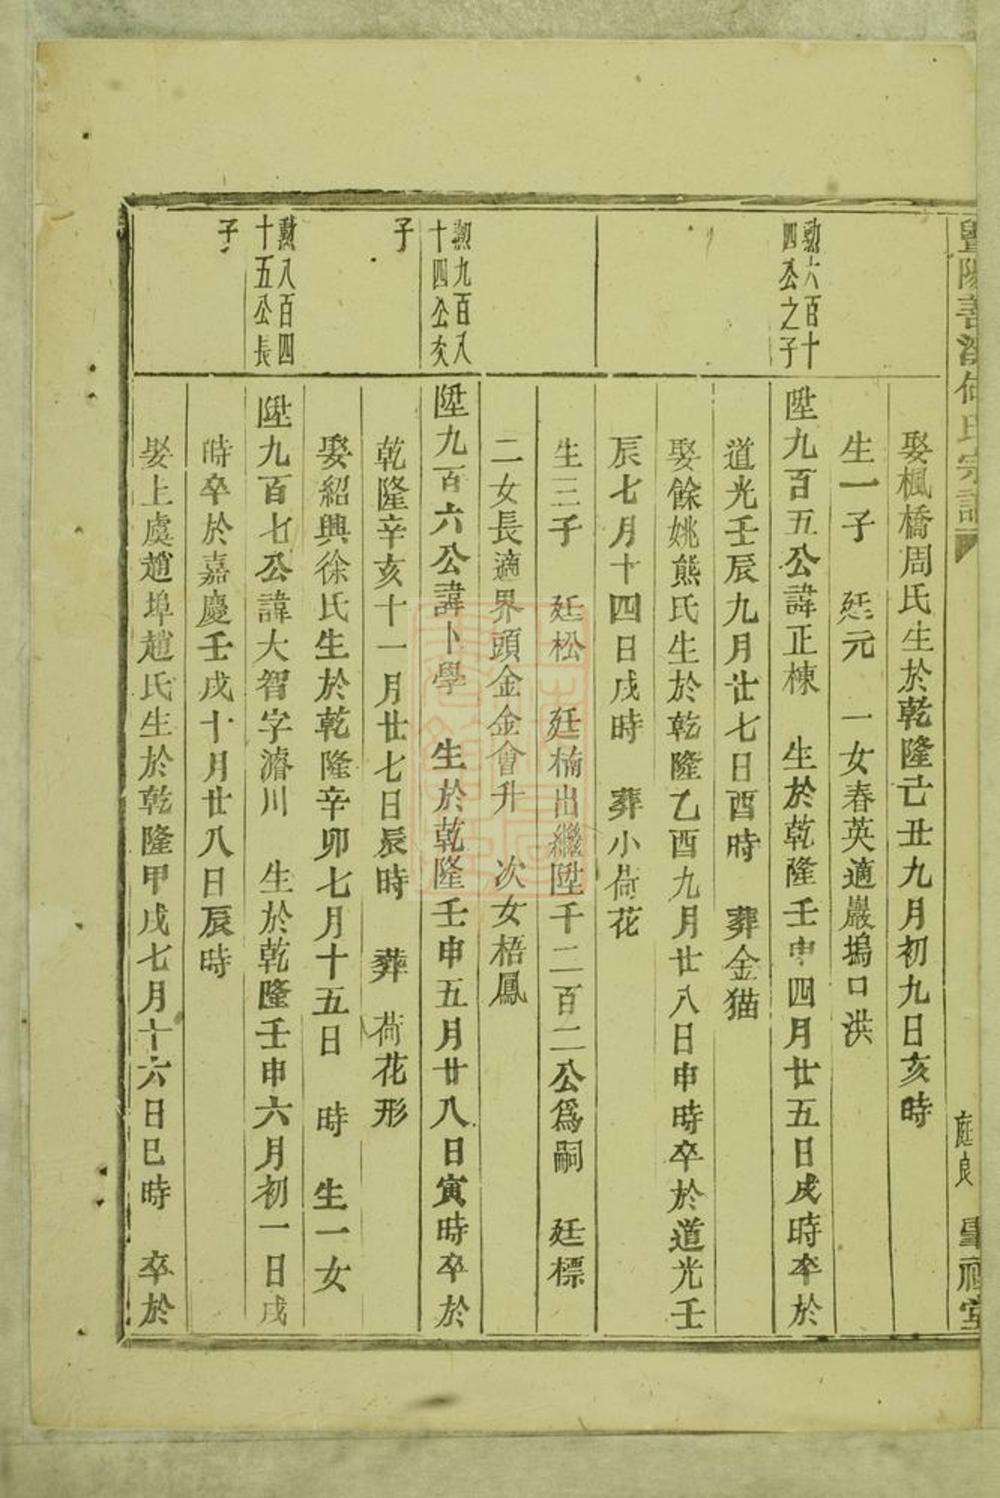 暨陽善溪何氏宗譜
庭良
聿福堂
娶楓橋周氏生於乾隆己丑九月初九日亥時
生一子　廷元　一女春英適巖塢口洪
勳六百十
四公之子
陞九百五公諱正棟　生於乾隆壬申四月廿五日戌時卒於
道光壬辰九月廿七日酉時　葬金猫
娶餘姚熊氏生於乾隆乙酉九月廿八日申時卒於道光壬
辰七月十四日戌時　葬小荷花
生三子　廷松　廷楠出繼陞千二百二公爲嗣　廷標
二女長適界頭金金會升　次女梧鳳
勳九百八
十四公次
子
陞九百六公諱卜學　生於乾隆壬申五月廿八日寅時卒於
乾隆辛亥十一月廿七日辰時　葬荷花形
娶紹興徐氏生於乾隆辛卯七月十五日　時　生一女
勳八百四
十五公長
子
陞九百七公諱大智字濬川　生於乾隆壬申六月初一日戌
時卒於嘉慶壬戌十月廿八日辰時
娶上虞趙埠趙氏生於乾隆甲戌七月十六日巳時　卒於